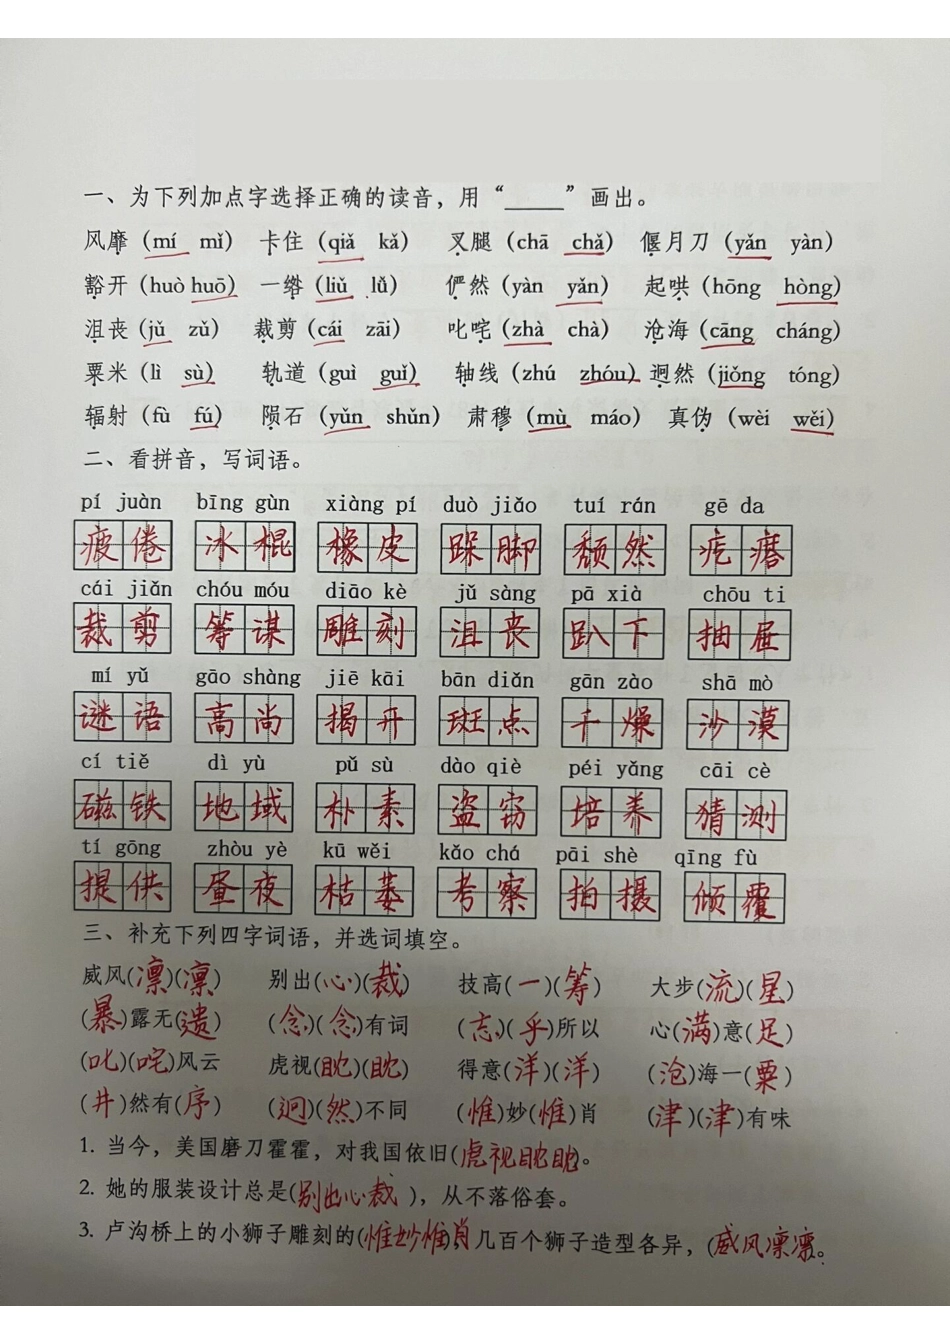 一、为下列加点字选择正确的读音，用“_____”画出。
风靡（mí mǐ） 卡住（qiǎ kǎ） 叉腿（chā chǎ） 偃月刀（yǎn yàn）
豁开（huò huō） 一绺（liǔ lǚ） 俨然（yàn yǎn） 起哄（hōng hòng）
沮丧（jǔ zǔ） 裁剪（cái zāi） 叱咤（zhà chà） 沧海（cāng cháng）
粟米（lì sù） 轨道（guì guǐ） 轴线（zhú zhóu） 迥然（jiǒng tóng）
辐射（fù fú） 陨石（yǔn shǔn） 肃穆（mù máo） 真伪（wèi wěi）
二、看拼音，写词语。
pí juàn bīng gùn xiàng pí duò jiǎo tuí rán gē da
疲倦 冰棍 橡皮 跺脚 颓然 疙瘩
cái jiǎn chóu móu diāo kè jǔ sàng pā xià chōu ti
裁剪 筹谋 雕刻 沮丧 趴下 抽屉
mí yǔ gāo shàng jiē kāi bān diǎn gān zào shā mò
谜语 高尚 揭开 斑点 干燥 沙漠
cí tiě dì yù pǔ sù dào qiè péi yǎng cāi cè
磁铁 地域 朴素 盗窃 培养 猜测
tí gōng zhòu yè kū wěi kǎo chá pāi shè qīng fù
提供 昼夜 枯萎 考察 拍摄 倾覆
三、补充下列四字词语，并选词填空。
威风(凛)(凛) 别出(心)(裁) 技高(一)(筹) 大步(流)(星)
(暴)露无(遗) (念)(念)有词 (忘)(乎)所以 心(满)意(足)
(叱)(咤)风云 虎视(眈)(眈) 得意(洋)(洋) (沧)海一(粟)
(井)然有(序) (迥)(然)不同 (惟)妙(惟)肖 (津)(津)有味
1. 当今，美国磨刀霍霍，对我国依旧(虎视眈眈)。
2. 她的服装设计总是(别出心裁)，从不落俗套。
3. 卢沟桥上的小狮子雕刻的(惟妙惟肖)几百个狮子造型各异，(威风凛凛。